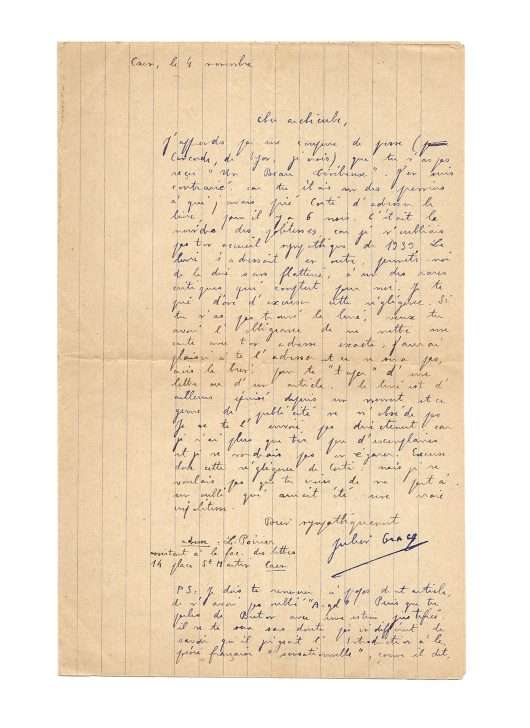 Caen, le 4 novembre
cher archicube,
J'apprends par une coupure de presse (
Concorde, de Lyon, je crois) que tu n'as pas
reçu "Un Beau ténébreux". J'en suis
contrarié car tu étais un des premiers
à qui j'avais prié Corti d'adresser le
livre, quand il y a 6 mois. C'était la
moindre des politesses, car je n'oubliais
pas ton accueil sympathique de 1939. Le
livre s'adressait en outre, permets-moi
de le dire sans flatterie, à un des rares
critiques qui comptent pour moi. Je te
prie donc d'excuser cette négligence. Si
tu n'as pas trouvé le livre, veux-tu
avoir l'obligeance de me mettre une
carte avec ton adresse exacte, j'aurai
plaisir à te l'adresser et ce ne sera pas,
pour te "taper" d'une
lettre ou d'un article. Le livre est d'
ailleurs épuisé depuis un moment et ce
genre de publicité ne m'obsède pas
Je ne te l'envoie pas directement car
je n'ai plus que très peu d'exemplaires
et je ne voudrais pas en égarer. Excuse
donc cette négligence de Corti mais je ne
voulais pas que tu croies de ma part à
un oubli qui aurait été une vraie
impolitesse.
Bien sympathiquement
Julien Gracq
adresse : L. Poirier
assistant à la fac. des lettres
14 place St Martin Caen
P.S. Je dois te remercier à propos dudit article,
de n'avoir pas oublié "Argol". Puis que tu
parles de Breton avec une estime justifiée,
il ne te sera sans doute pas indifférent de
savoir qu'il jugeait l'Introduction à la
poésie française "sensationnelle", comme il dit.